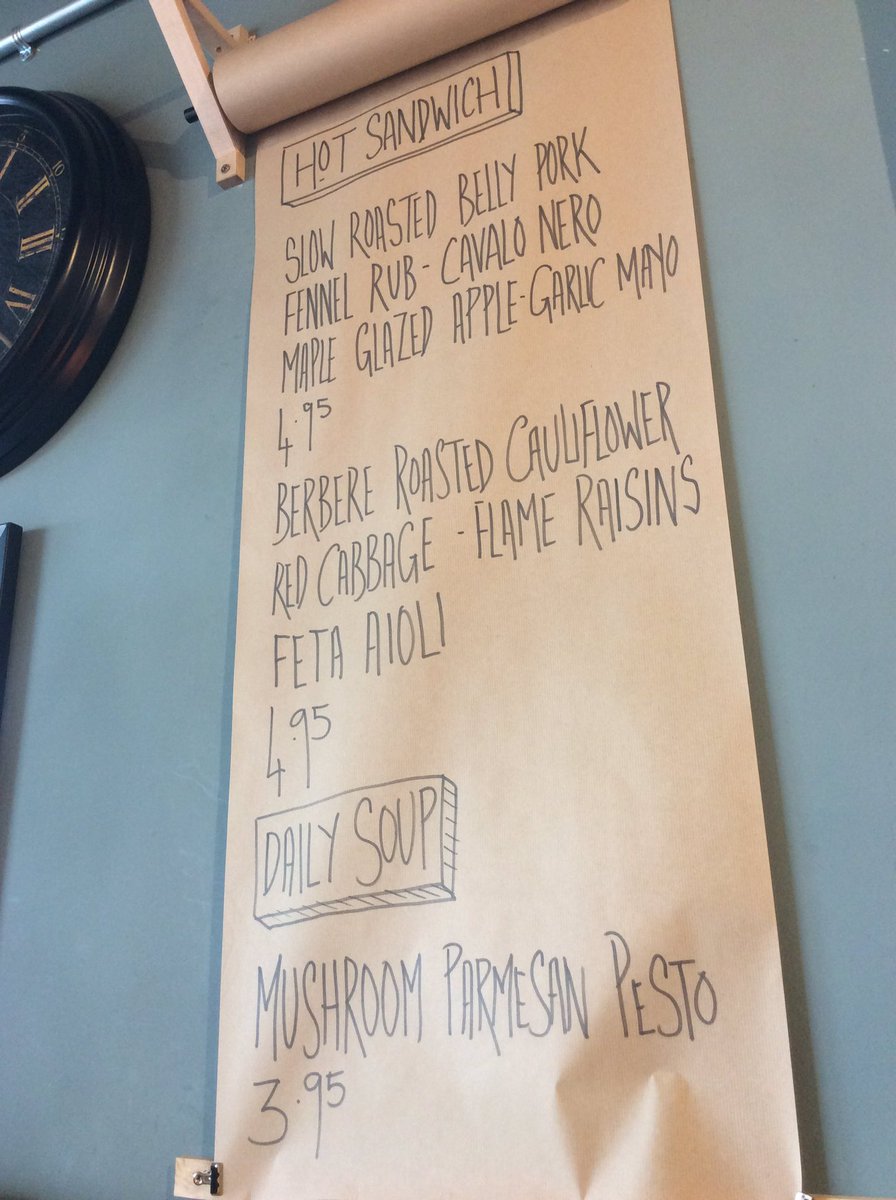 HOT SANDWICH
SLOW ROASTED BELLY PORK
FENNEL RUB - CAVALO NERO
MAPLE GLAZED APPLE-GARLIC MAYO
4.95
BERBERE ROASTED CAULIFLOWER
RED CABBAGE - FLAME RAISINS
FETA AIOLI
4.95
DAILY SOUP
MUSHROOM PARMESAN PESTO
3.95